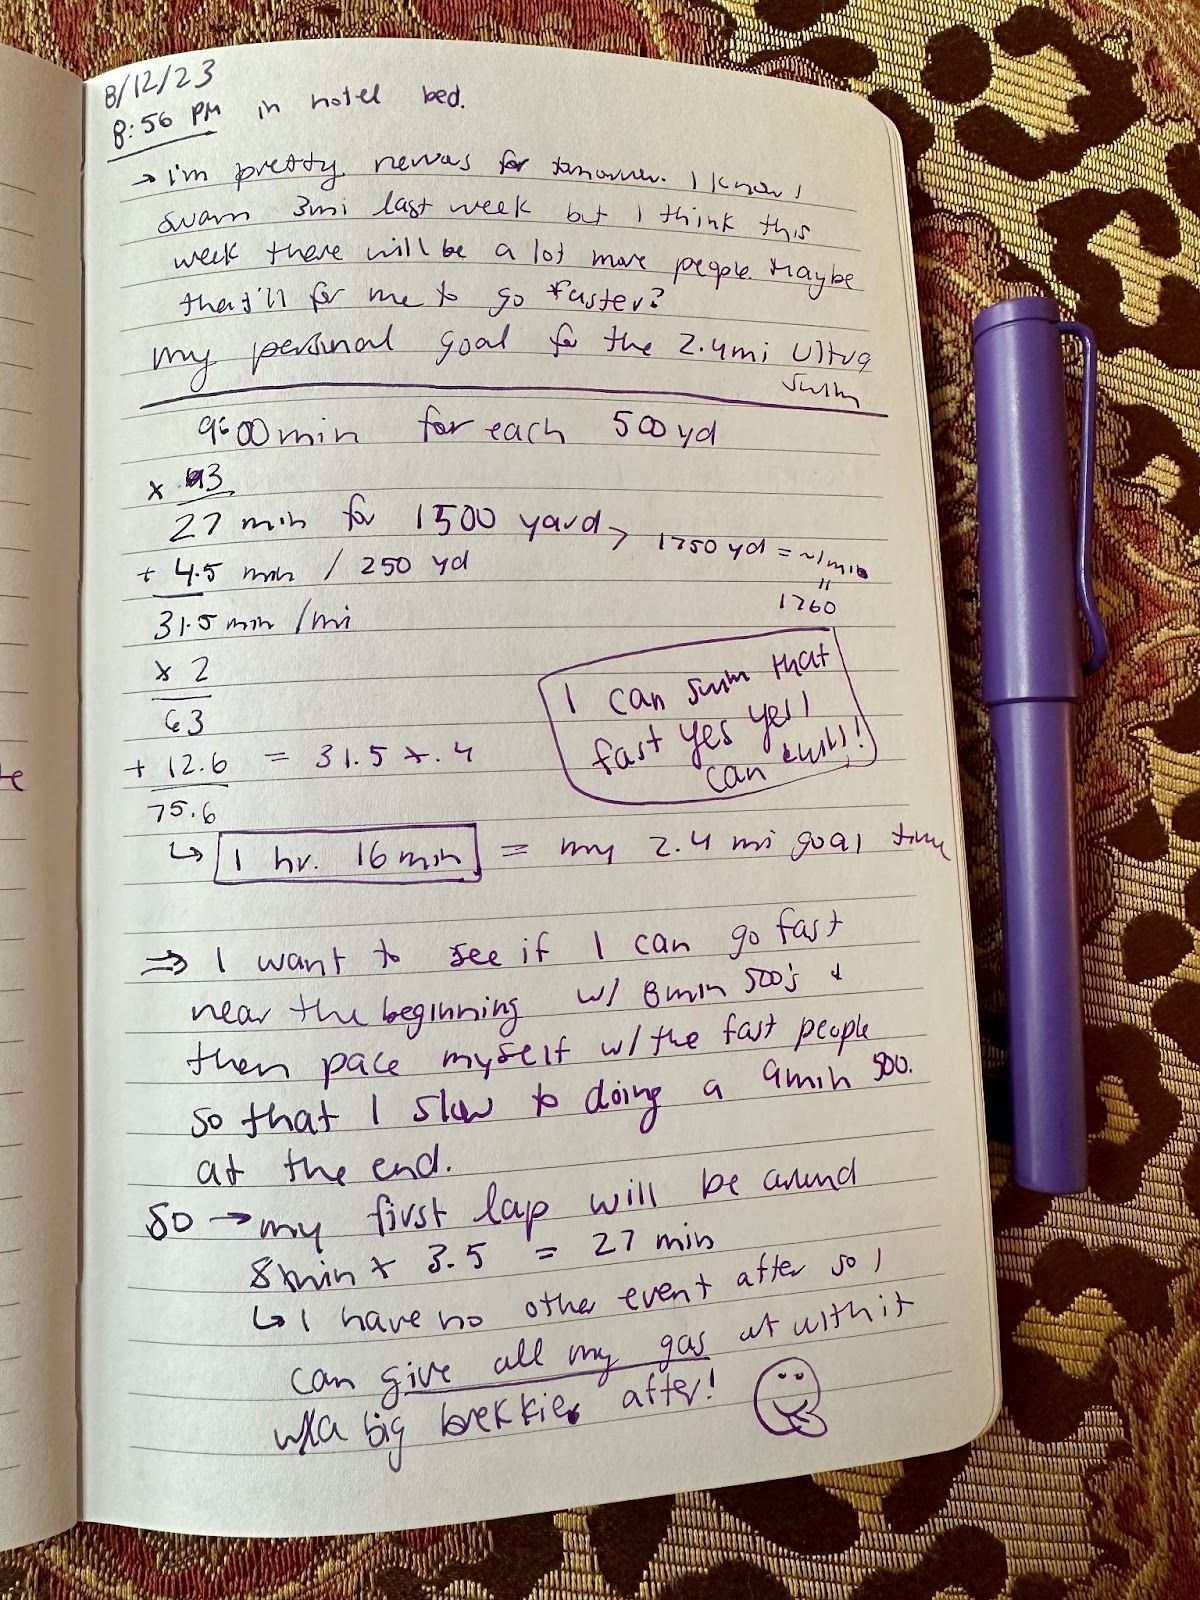 8/12/23
8:56 PM in hotel bed.
→ I'm pretty nervas for tomorrow. I know I
swam 3mi last week but I think this
week there will be a lot more people. Maybe
that'll for me to go faster?
my personal goal for the 2.4mi Ultra
swim
9:00 min for each 500 yd
x 3
27 min for 1500 yard > 1750 yd = ~1 mi
+ 4.5 min / 250 yd
"
1760
31.5 min /mi
x 2
63
+ 12.6 = 31.5 x .4
75.6
I can swim that
fast yes yes I
can &will!
↳ 1 hr. 16 min = my 2.4 mi goal time
⇒ I want to see if I can go fast
near the beginning w/ 8min 500's &
then pace myself w/the fast people
so that I slow to doing a 9min 500.
at the end.
SO → my first lap will be around
8min x 3.5 = 27 min
↳ I have no other event after so I
can give all my gas at with it
w/a big brekkie after!
te